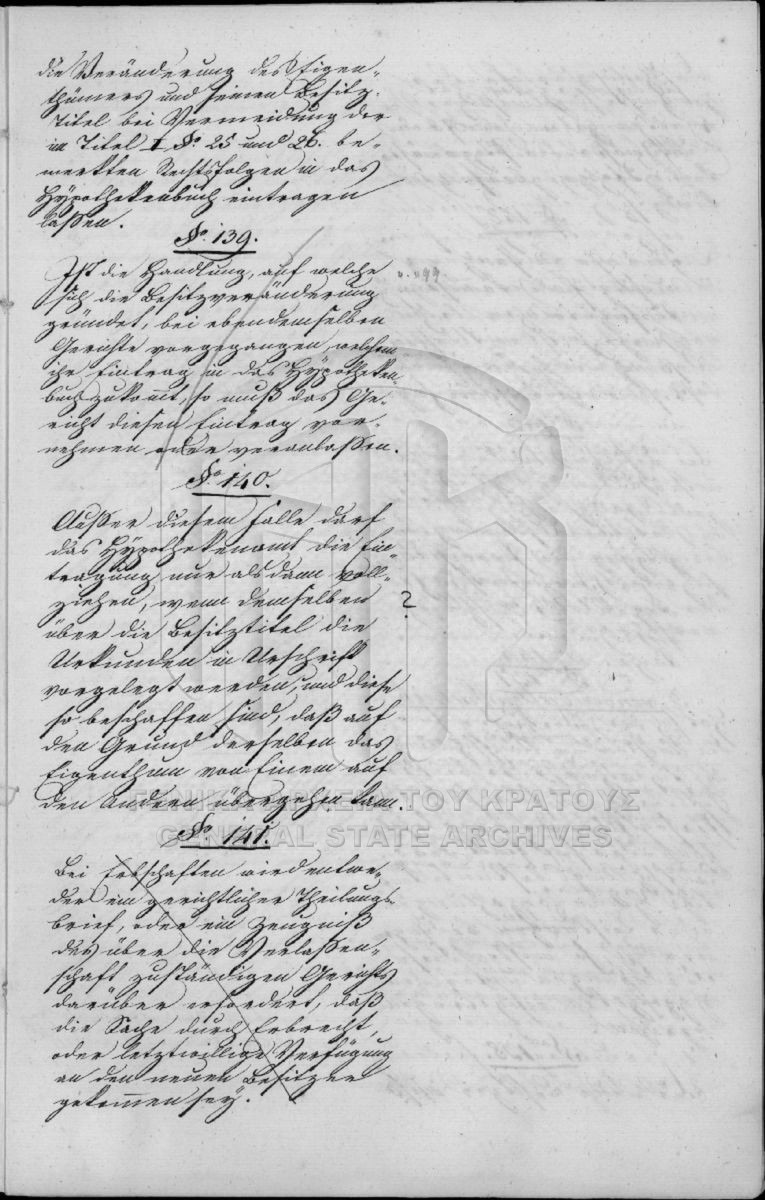 die Veränderung des Eigen-
thümers und seinen Besitz-
titel bei Vermeidung der
im Titel I §. 25 und 26. be-
merkten Rechtsfolgen in das
Hÿpothekenbuch eintragen
lassen.
§. 139.
Ist die Handlung, auf welche
sich die Besitzveränderung
gründet, bei ebendemselben
Gerichte vorgegangen, welchem
ihr Eintrag in das Hÿpotheken-
buch zukom̄t, so muß das Ge-
richt diesen Eintrag vor-
nehmen oder veranlassen.
§. 140.
Ausser diesem Falle darf
das Hÿpothekenamt die Ein-
tragung nur alsdann voll-
ziehen, wenn demselben
?
über die Besitztitel die
Urkunden in Urschrift
vorgelegt werden, und diese
so beschaffen sind, daß auf
den Grund derselben das
Eigenthum von Einem auf
den Andern übergehen kann.
ΓΕΝΙΚΑ ΑΡΧΕΙΑ ΤΟΥ ΚΡΑΤΟΥΣ
GENERAL STATE ARCHIVES
§. 141.
Bei Erbschaften wird entwe-
der ein gerichtlicher Theilungs-
brief, oder ein Zeugniß
des über die Verlassen-
schaft zuständigen Gerichts
darüber erfordert, daß
die Sache durch Erbrecht,
oder letztwillige Verfügung
an den neuen Besitzer
gekom̄en seÿ.